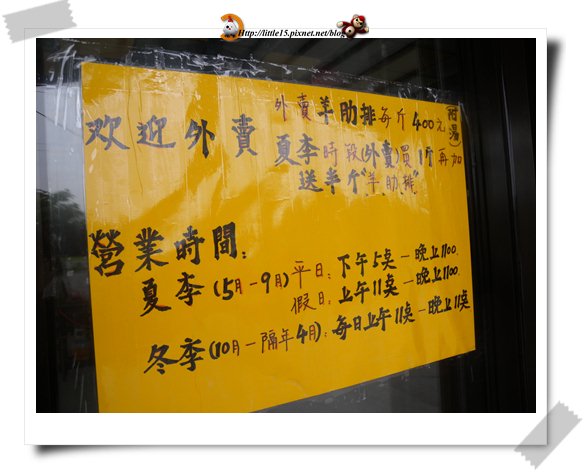 Http://little15.pixnet.net/blog
外賣羊肋排每斤400元(附湯)
欢迎外賣 夏季時段(外賣)買1斤再加
送半斤"羊肋排"
營業時間:
夏季(5月-9月)平日:下午5点-晚上1100.
假日:上午11点-晚上1100.
冬季(10月-隔年4月):每日上午11点-晚上11点